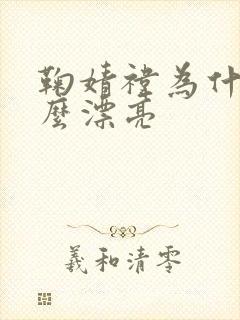 鞠婧禕為什
麼漂亮
羲和清零